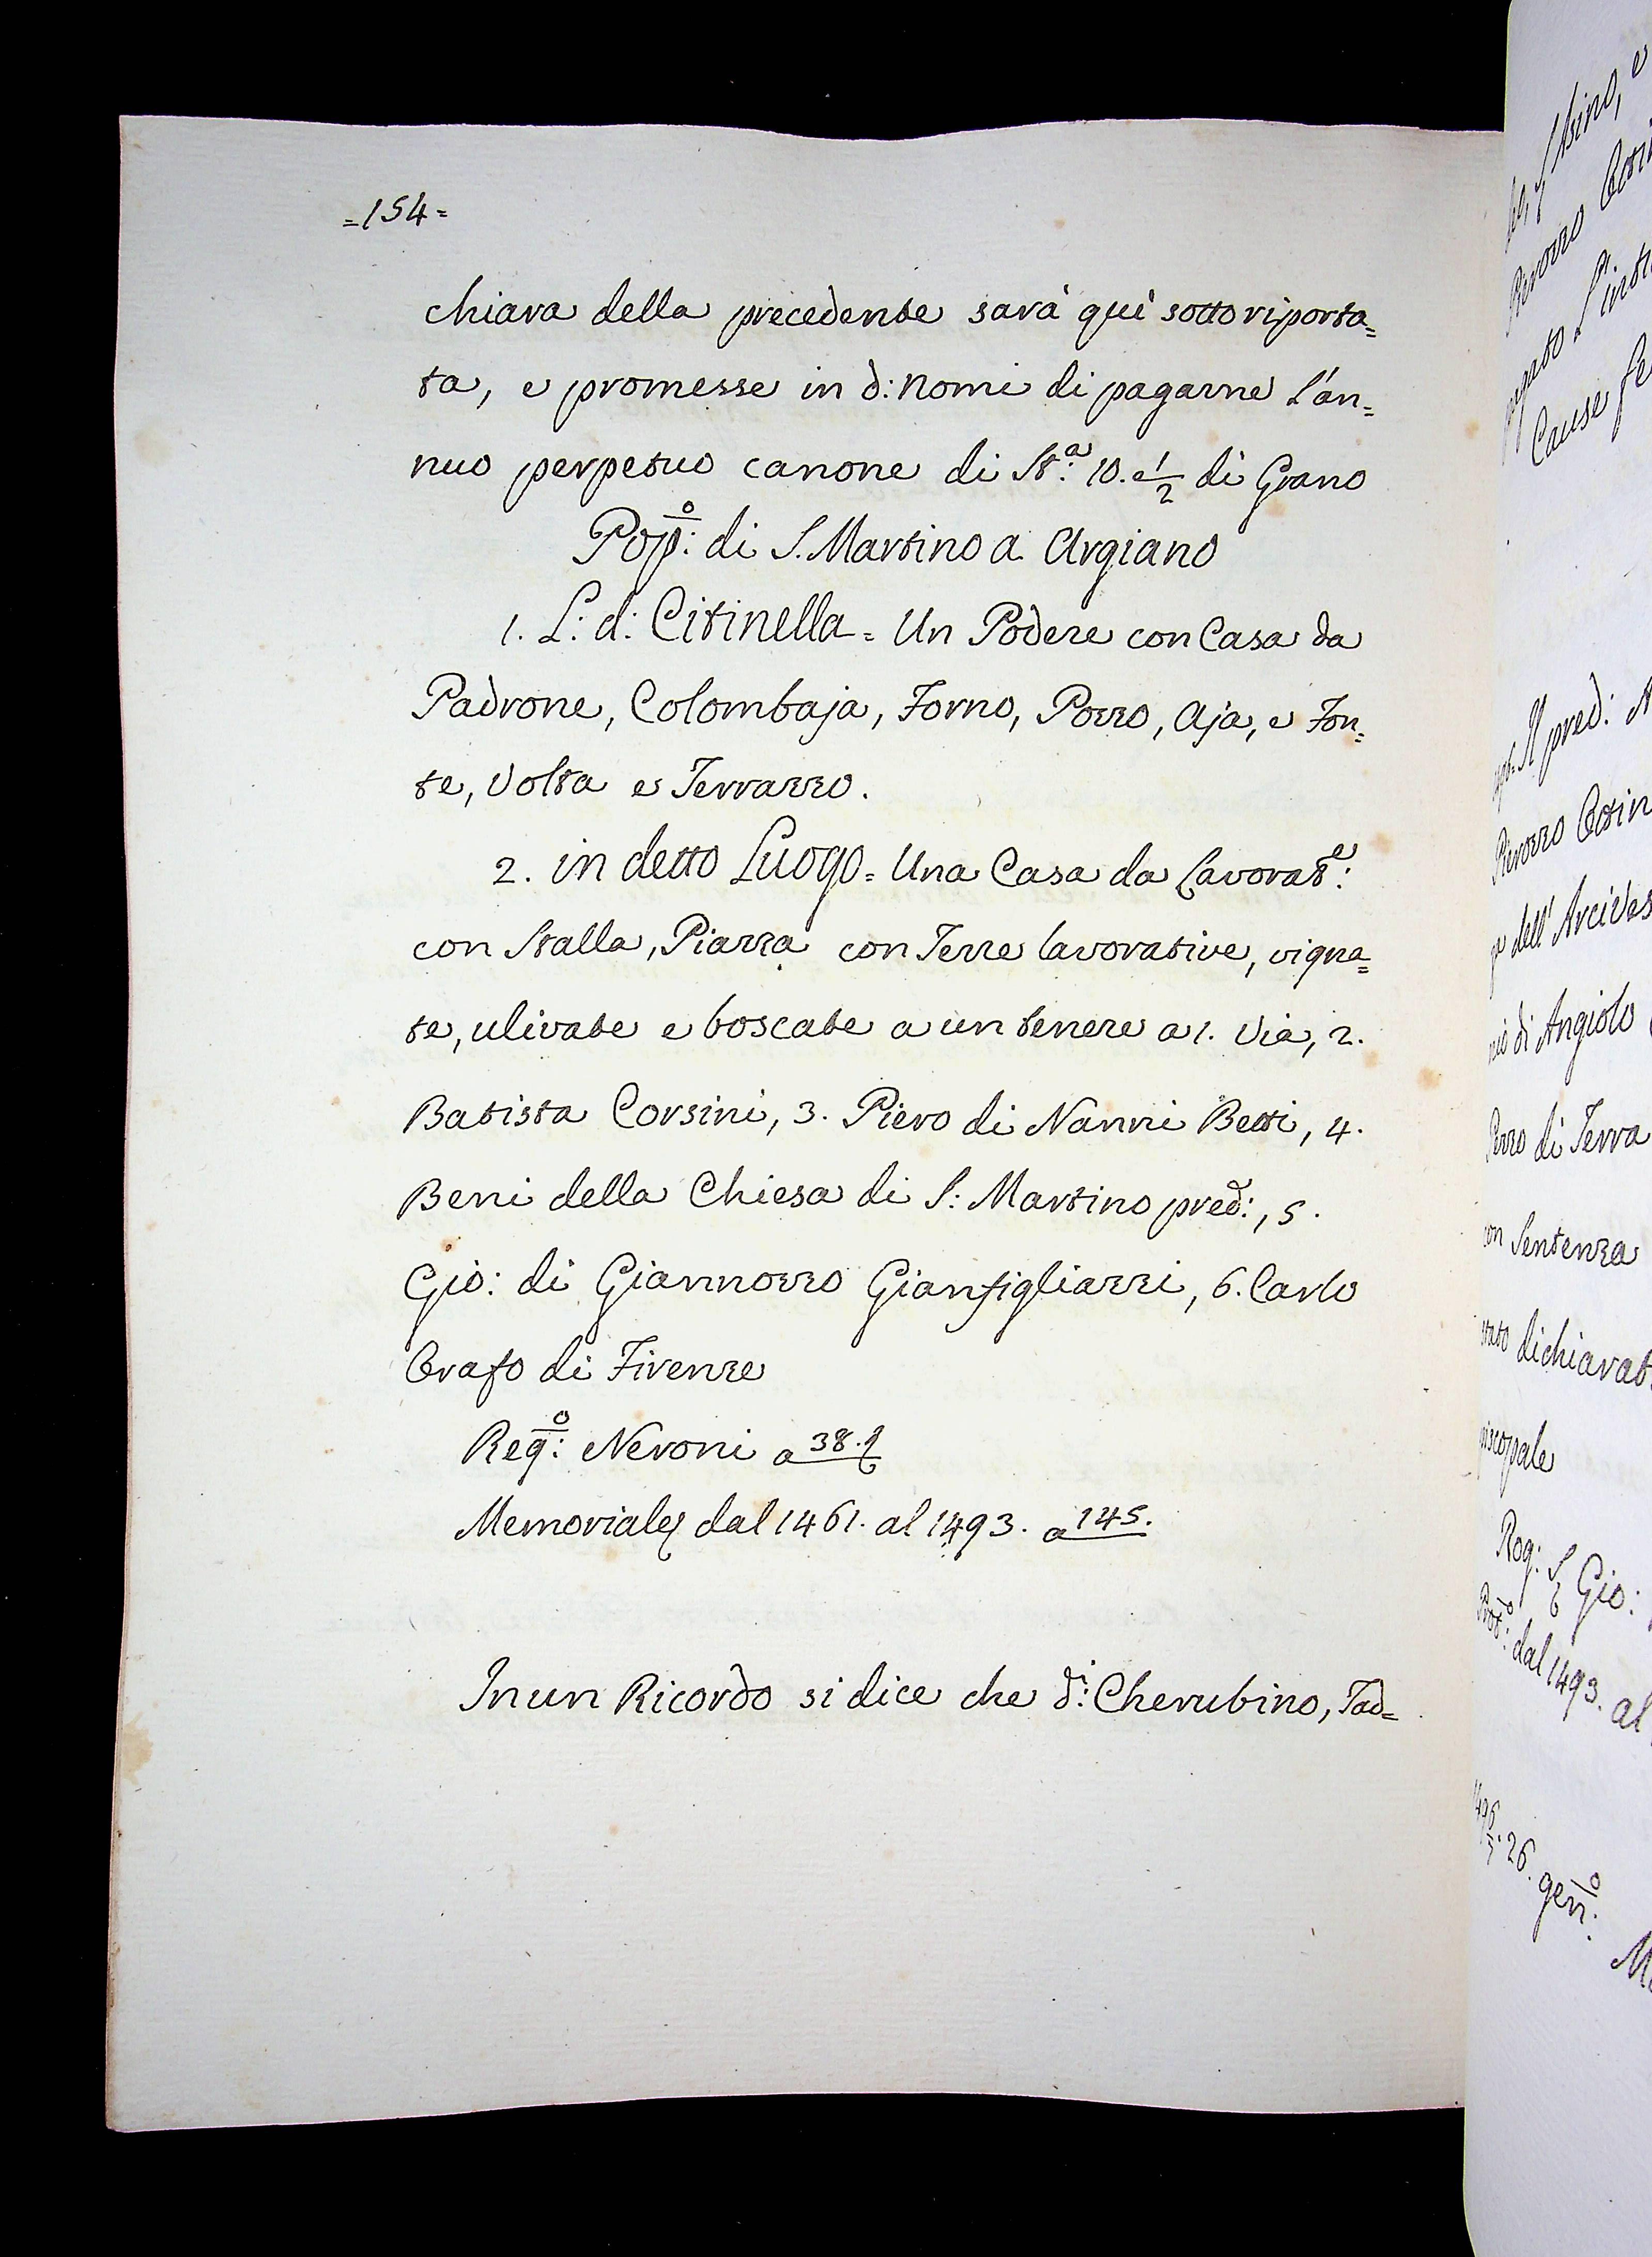 =154=
chiara della precedente sarà quì sotto riporta=
ta, e promesse in d: nomi di pagarne l'an=
nuo perpetuo canone di St:ª 10. e 1/2 di Grano
Pop:º di S. Martino a Argiano
1. L: d: Citinella = Un Podere con Casa da
Padrone, Colombaja, Forno, Pozzo, Aja, e Fon=
te, Volta e Terrazzo.
2. in detto Luogo = Una Casa da Lavorat:e
con Stalla, Piazza con Terre lavorative, vigna=
te, ulivate e boscate a un tenere a 1. Via, 2.
Batista Corsini, 3. Piero di Nanni Betti, 4.
Beni della Chiesa di S: Martino pred:, 5.
Gio: di Giannozzo Gianfigliazzi, 6. Carlo
Orafo di Firenze
Reg:º Neroni a 38.
Memoriale dal 1461. al 1493. a 145.
In un Ricordo si dice che d:i Cherubino, Tad=
Rinozzo
Cause
pred:
Rinozzo
dell' Arcives
di Angiolo
Pezzo di Terra
con Sentenza
stato dichiarat
piscopale
Rog: S Gio:
dal 1493. al
26. genn:º